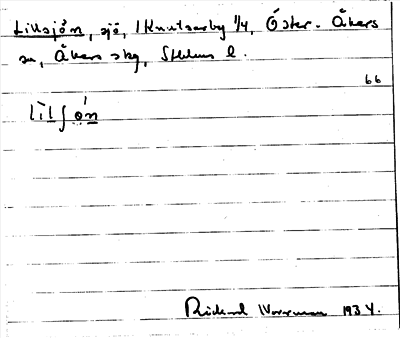 Lillsjön, sjö, 1 Knutsarby 1/4, Öster-Åkers
sn, Åkers skg, Sthlms l.
66
lìlʃǿn
Rickard Wornman 1934.